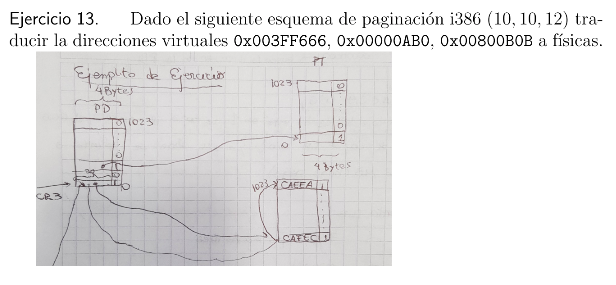 Ejercicio 13. Dado el siguiente esquema de paginación i386 (10, 10, 12) tra-
ducir la direcciones virtuales 0x003FF666, 0x00000AB0, 0x00800B0B a físicas.
Ejemplito de Ejercicio
PT
4 Bytes
PD
1023
0
0
1023
0
0
1
0
4 Bytes
0
CR3
1023
CAFEA 1
CAFEC 1